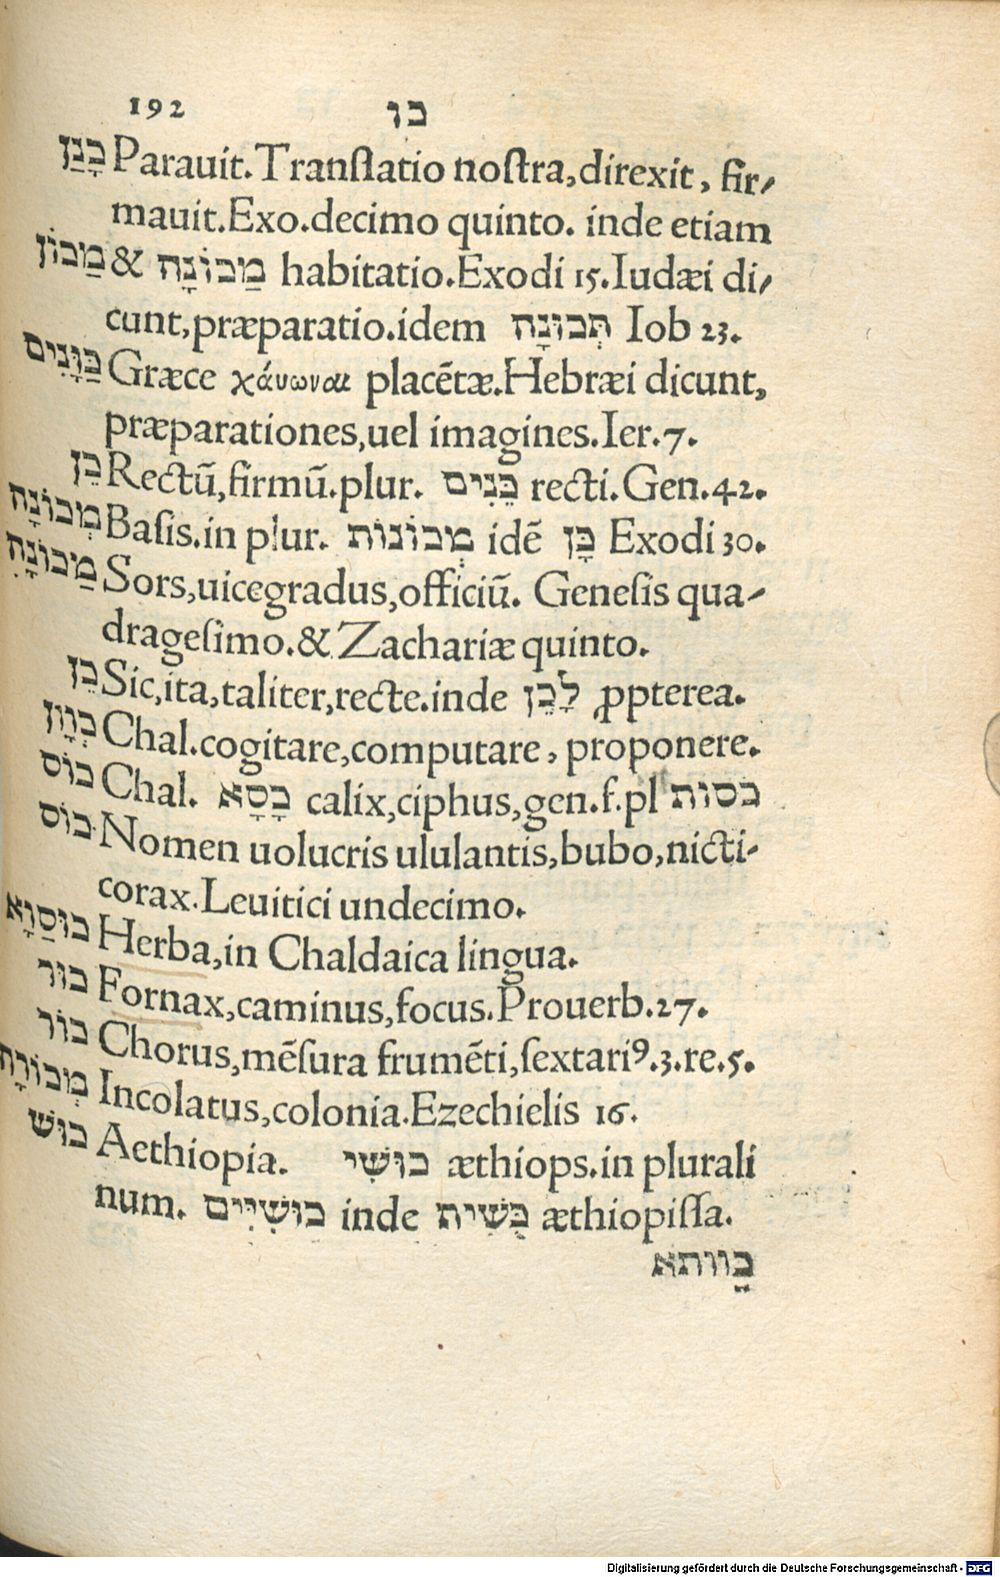 192 כו
כָנַן Parauit. Translatio nostra, direxit, fir⸗
mauit. Exo. decimo quinto. inde etiam
מַכוֹן & מַכוֹנָה habitatio. Exodi 15. Iudæi di⸗
cunt, præparatio. idem תְּכוּנָה Iob 23.
כַּוָּנִים Græce χάυωναι placẽtæ. Hebræi dicunt,
præparationes, uel imagines. Ier. 7.
כֵּן Rectũ, firmũ. plur. כֵּנִים recti. Gen. 42.
מְכוֹנָה Basis. in plur. מְכוֹנוֹת idẽ כָּן Exodi 30.
מַכוֹנָה Sors, uicegradus, officiũ. Genesis qua⸗
dragesimo. & Zachariæ quinto.
כֵּן Sic, ita, taliter, recte. inde לָכֵן ꝓpterea.
כְּוָון Chal. cogitare, computare, proponere.
כוֹס Chal. כָסָא calix, ciphus, gen. f. pl כסות
כוֹס Nomen uolucris ululantis, bubo, nicti⸗
corax. Leuitici undecimo.
כוּסַוָא Herba, in Chaldaica lingua.
כוּר Fornax, caminus, focus. Prouerb. 27.
כוֹר Chorus, mẽsura frumẽti, sextariꝰ. 3. re. 5.
מְכוֹרָה Incolatus, colonia. Ezechielis 16.
כוּשׁ Aethiopia. כוּשִׁי æthiops. in plurali
num. כוּשִׁיִים inde כֻּשִׁית æthiopissa.
כָּוותא
Digitalisierung gefördert durch die Deutsche Forschungsgemeinschaft - DFG